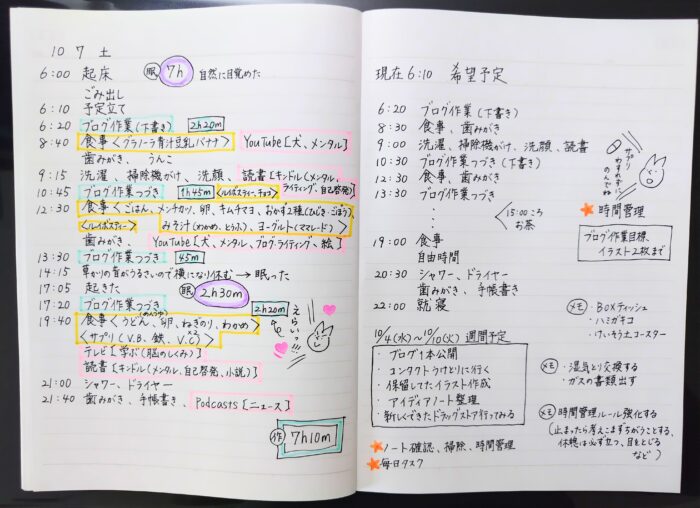 10 7 土
6:00 起床 眠 7h 自然に目覚めた
ごみ出し
6:10 予定立て
6:20 ブログ作業(下書き) 2h20m
8:40 食事<グラノーラ青汁豆乳バナナ> YouTube[犬、メンタル]
歯みがき、うんこ
9:15 洗濯、掃除機がけ、洗顔、読書[キンドル(メンタル、ライティング、自己啓発)]
10:45 ブログ作業つづき 1h45m <ルイボスティー、チョコ>
12:30 食事<ごはん、メンチカツ、卵、キムチマヨ、おかず2種(ひじき・ごぼう)、
<ルイボスティー> みそ汁(わかめ、とうふ)、ヨーグルト(ママレード)>
歯みがき、YouTube[犬、メンタル、ブログ・ライティング、絵]
13:30 ブログ作業つづき 45m
14:15 草かりの音がうるさいので横になり休む→眠った
17:05 起きた 眠 2h30m
17:20 ブログ作業つづき 2h20m
19:40 食事<うどん、卵、ねぎのり、わかめ>
<サプリ(V.B、鉄、V.C×2)>
えらいっ!!
テレビ[学ぶ(脳のしくみ)]
読書[キンドル(メンタル、自己啓発、小説)]
21:00 シャワー、ドライヤー
21:40 歯みがき、手帳書き、Podcasts[ニュース]
作 7h10m
現在6:10 希望予定
6:20 ブログ作業(下書き)
8:30 食事、歯みがき
9:00 洗濯、掃除機がけ、洗顔、読書
10:30 ブログ作業つづき(下書き)
12:30 食事、歯みがき
13:30 ブログ作業つづき
15:00ころ
お茶
19:00 食事
自由時間
20:30 シャワー、ドライヤー
歯みがき、手帳書き
22:00 就寝
サプリ
わすれずに
のんでね
時間管理
ブログ作業目標、
イラスト2枚まで
メモ ・BOXティッシュ
・ハミガキコ
・けいそう土コースター
10/4(水)~10/10(火) 週間予定
・ブログ1本公開
・コンタクトうけとりに行く
・保留してたイラスト作成
・アイディアノート整理
・新しくできたドラッグストア行ってみる
メモ ・湿気とり交換する
・ガスの書類出す
メモ 時間管理ルール強化する
(止まったら考えこまずちがうことする、
休憩は必ず立つ、目をとじる
など)
ノート確認、掃除、時間管理
毎日タスク